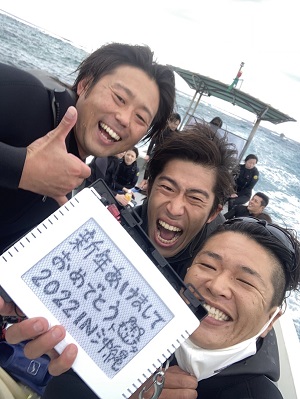 新年あけまして
おめでとう
2022 IN 沖縄